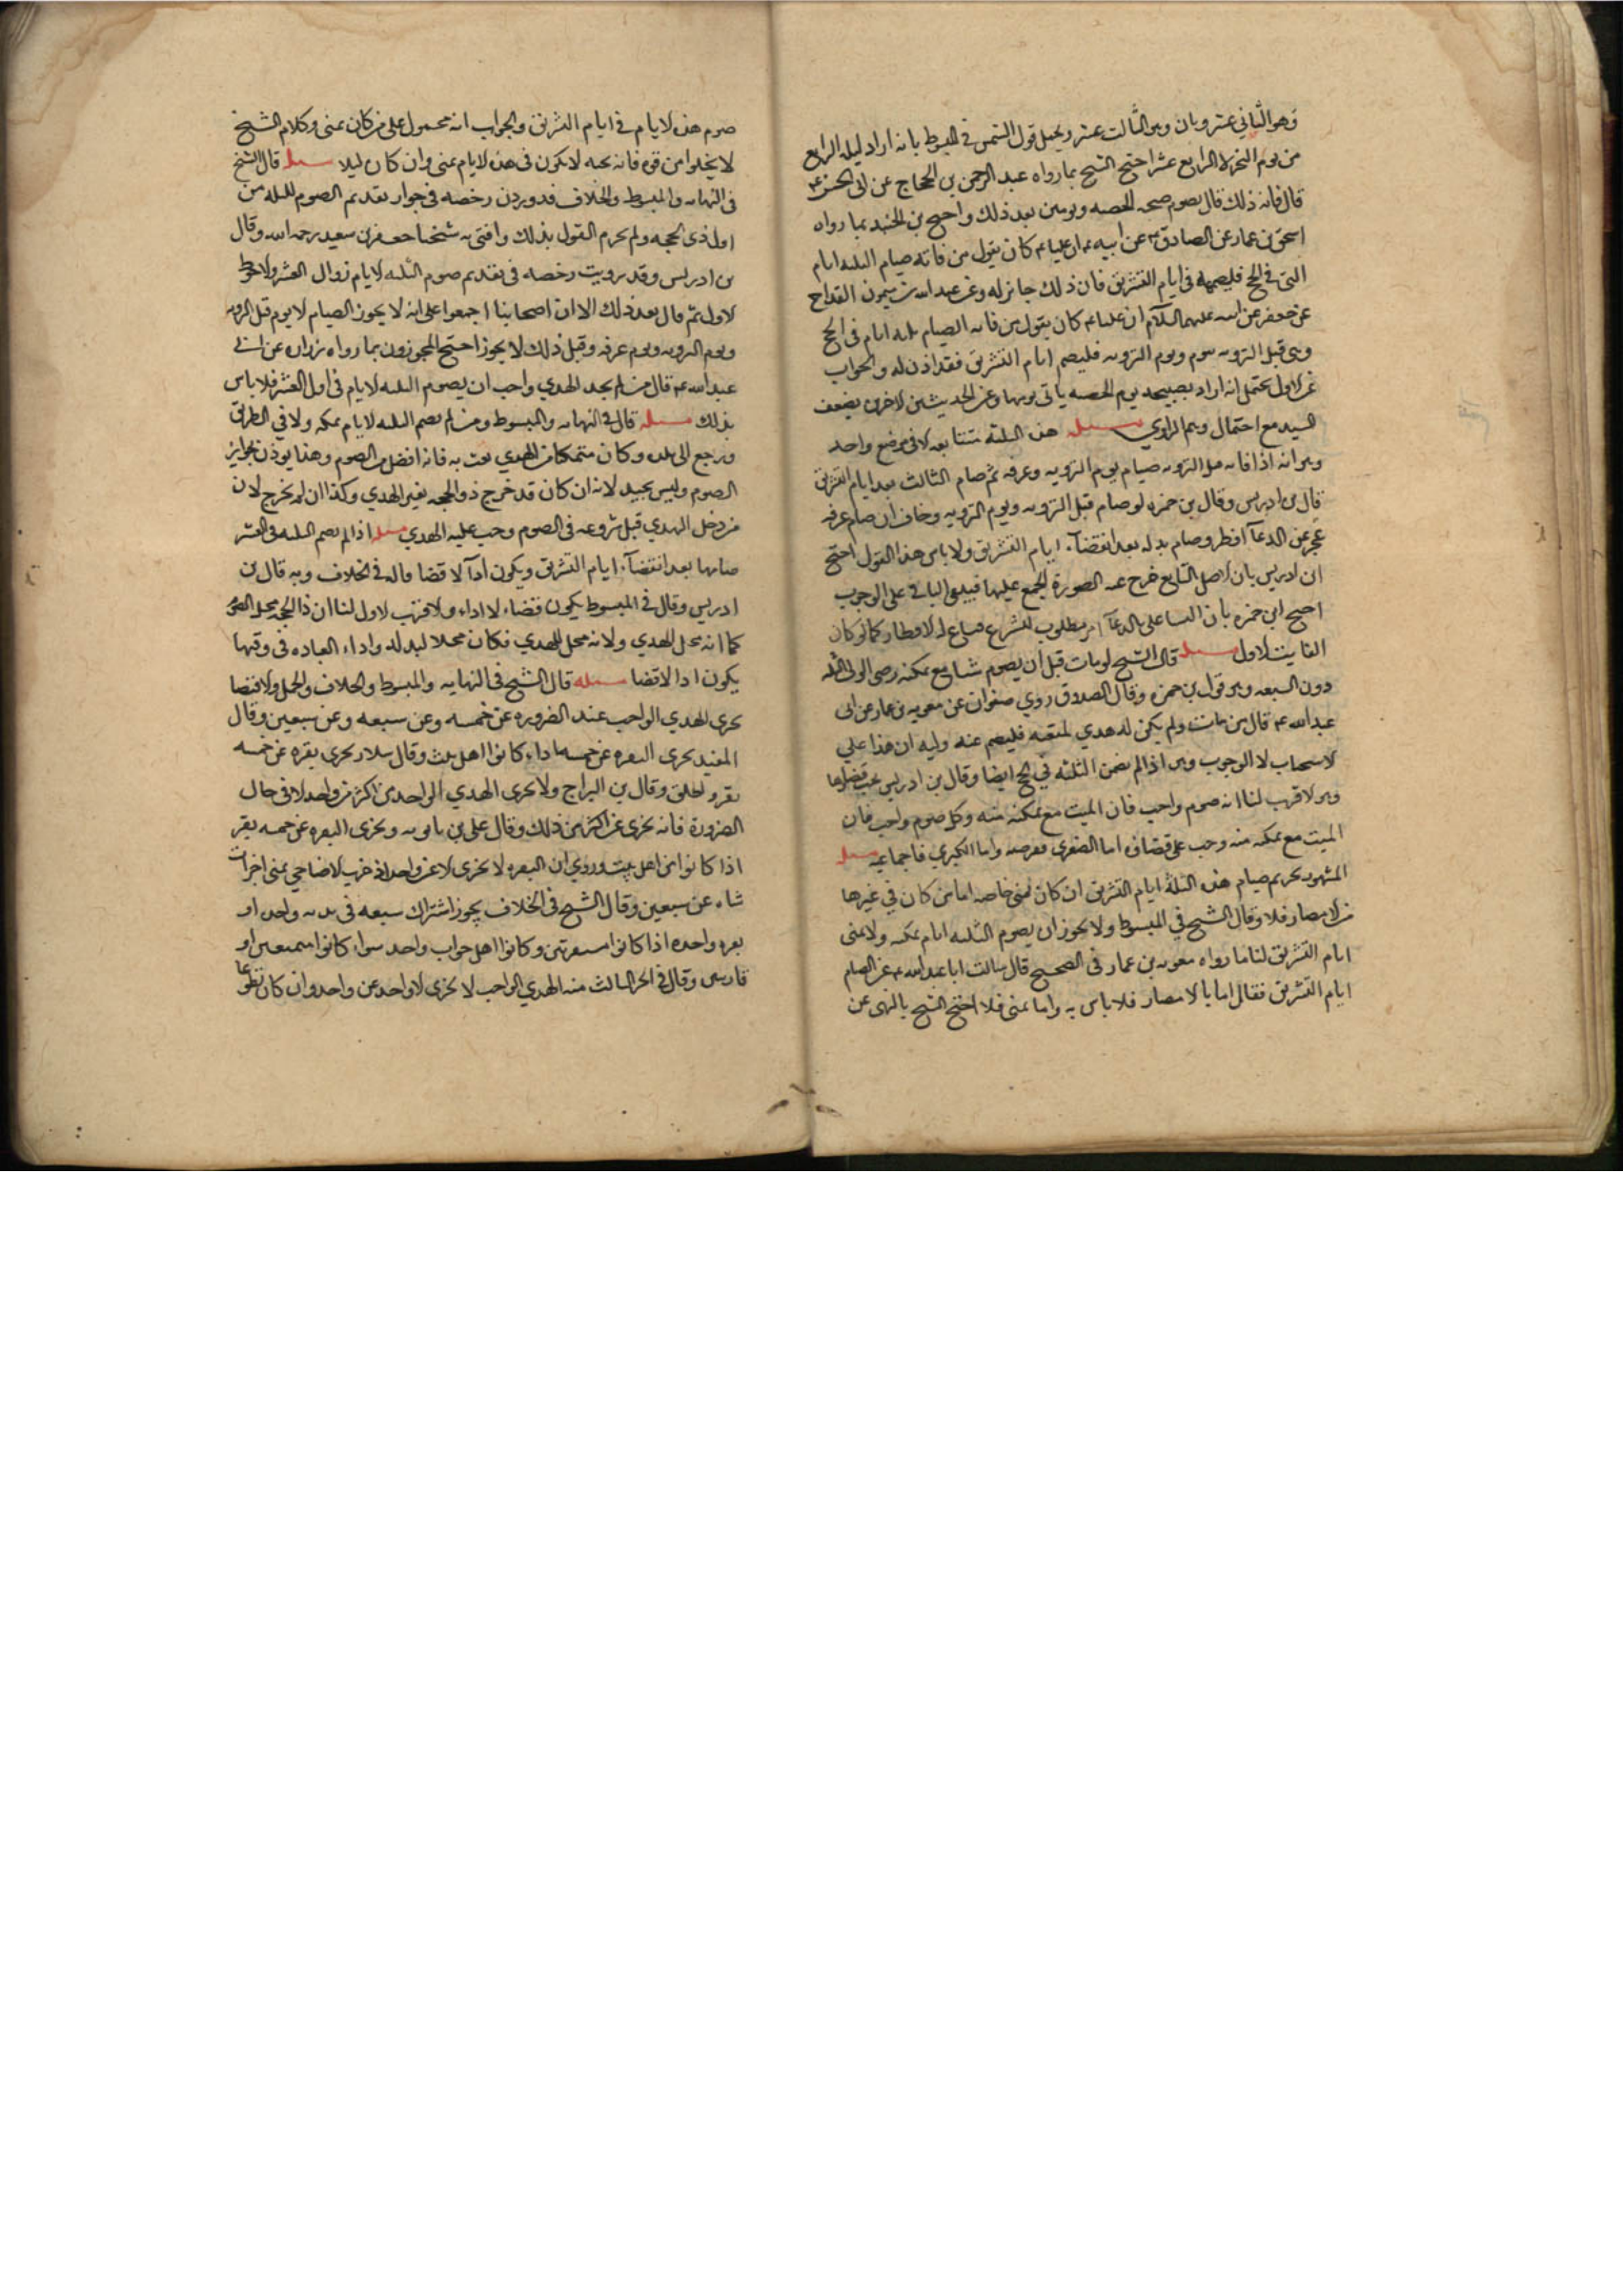 وهو الثاني عشر وبان وهو الثالث عشر ويحمل قول الشيخ في المبسوط بانه اراد ليله الرابع
من يوم النحر لا الرابع عشر احتج الشيخ بما رواه عبد الرحمن بن الحجاج عن ابي الحسن ع
قال فاته ذلك قال يصوم صبحه الحصبه ويومين بعد ذلك واحتج بن الجنيد بما رواه
اسحق بن عمار عن الصادق ع عن ابيه ع ان عليا ع كان يقول من فاته صيام الثلثه ايام
التي في الحج فليصمها في ايام التشريق فان ذلك جائز له وعن عبد الله بن ميمون القداح
عن جعفر عن ابيه عليهما السلام ان عليا ع كان يقول من فاته الصيام ثلثه ايام في الحج
وهي قبل الترويه بيوم ويوم الترويه فليصم ايام التشريق فقد اذن له والجواب
عن الاول يحتمل انه اراد بصبيحه يوم الحصبه ياتي يومها وعن الحديثين لاخرين بضعف
السيد مع احتمال وهم الراوي مسله هذه الثلثه متتابعه لا في موضع واحد
وهو انه اذا فاته قبل الترويه صيام يوم الترويه وعرفه ثم صام الثالث بعد ايام التشريق
قال بن ادريس وقال بن حمزه لو صام قبل الترويه ويوم الترويه وخاف ان صام عرفه
عجز عن الدعآ افطر وصام بدله بعد انقضآء ايام التشريق ولا باس هذا القول احتج
ان ادريس بان لاصل التتابع خرج عنه الصورة المجمع عليها فيبقى الباقي على الوجوب
احتج ابن حمزه بان التسا على الدعآ امر مطلوب للشرع فساغ له لافطار كما لو كان
الفايت لاول مسله قال الشيخ لو مات قبل ان يصوم شيا مع تمكنه صام الولي الثلثه
دون السبعه وهو قول بن حمزه وقال الصدوق روي صفوان عن معويه بن عمار عن ابي
عبد الله ع قال من مات ولم يكن له هدي لمتعته فليصم عنه وليه ان هذا علي
لاستحباب لا الوجوب وهو اذا لم يصم الثلثه في الحج ايضا وقال بن ادريس يجب قضاوها
وهو لاقرب لنا انه صوم واجب فات الميت مع تمكنه منه وكل صوم واجب فات
الميت مع تمكنه منه وجب على قضاؤه اما الصغرى ففرضه واما الكبرى فاجماعيه مسله
المشهور تحريم صيام هذه الثلثة ايام التشريق ان كان بمنى خاصه اما من كان في غيرها
من لامصار فلا وقال الشيخ في المبسوط ولا يجوز ان يصوم الثلثه ايام بمكه ولا بمنى
ايام التشريق لنا ما رواه معويه بن عمار في الصحيح قال سالت ابا عبد الله ع عن الصيام
ايام التشريق فقال اما بالامصار فلا باس به واما بمنى فلا احتج الشيخ بالنهى عن
صوم هذه لايام في ايام التشريق والجواب انه محمول على من كان بمنى وكلام الشيخ
لا يخلوا من قوه فانه يحبه لا يكون في هذه لايام بمنى وان كان ليلا مسله قال الشيخ
في النهايه والمبسوط والخلاف قد وردت رخصه في جواز تقديم الصوم الثلثه من
اول ذي الحجه ولم يحرم القول بذلك وافتى به شيخنا جعفر بن سعيد رحمه الله وقال
بن ادريس وقد رويت رخصه في تقديم صوم الثلثه لايام زوال العشر ولاحوط
لاول ثم قال بعد ذلك الا ان اصحابنا اجمعوا على انه لا يجوز الصيام لا يوم قبل الترويه
ويوم الترويه ويوم عرفه وقبل ذلك لا يجوز احتج المجوزون بما رواه زراره عن ابي
عبد الله ع قال من لم يجد الهدي واحب ان يصوم الثلثه لايام في اول العشر فلا باس
بذلك مسله قال في النهايه والمبسوط ومن لم يصم الثلثه لايام بمكه ولا في الطريق
ورجع الى بلده وكان متمكنا من الهدي بعث به فانه افضل من الصوم وهذا يوذن بجواز
الصوم وليس بجيد لانه ان كان قد خرج ذو الحجه تعين الهدي وكذا ان لم يخرج لان
من دخل الهدي قبل شروعه في الصوم وجب عليه الهدي مسله اذا لم يصم الثلثه في العشر
صامها بعد انقضآء ايام التشريق ويكون ادآ لا قضا قاله في الخلاف وبه قال بن
ادريس وقال في المبسوط يكون قضاء لا اداء ولاقرب لاول لنا ان ذا الحجه محل الصوم
كما انه محل للهدي ولانه محل للهدي فكان محلا لبدله واداء العباده في وقتها
يكون ادا لا قضا مسله قال الشيخ في النهايه والمبسوط والخلاف والجمل ولاقتصا
يجزى الهدي الواجب عند الضروره عن خمسه وعن سبعه وعن سبعين وقال
المفيد يجزى البقره عن خمسه اذا كانوا اهل بيت وقال سلار يجزى بقره عن خمسه
نفر واطلق وقال بن البراج ولا يجزى الهدي الواحد عن اكثر من واحد لا في حال
الضرورة فانه يجزى عن اكثر من ذلك وقال علي بن بابويه ويجزى البقره عن خمسه نفر
اذا كانوا من اهل بيت وروي ان البقره لا يجزى لا عن واحد اذا عزت لاضاحي بمنى اجزات
شاه عن سبعين وقال الشيخ في الخلاف يجوز اشتراك سبعه في بدنه واحده او
بقره واحده اذا كانوا متفرقين وكانوا اهل خوان واحد سواء كانوا متمتعين او
قارنين وقال في الجز الثالث منه الهدي الواجب لا يجزى لاواحد عن واحد وان كان تطوعا